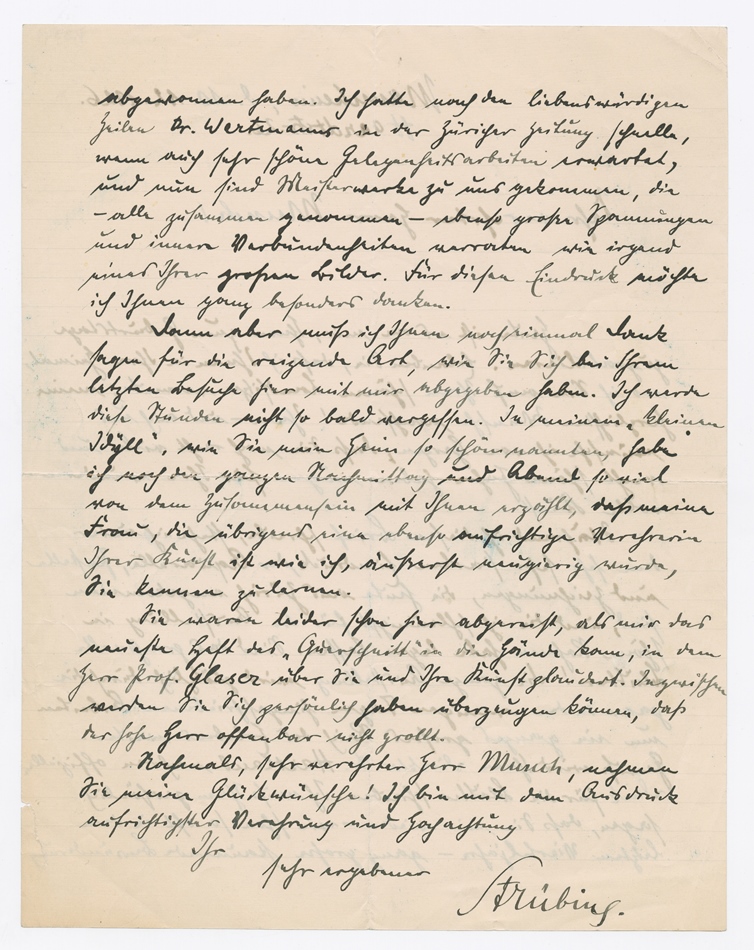 abgewonnen haben. Ich hatte nach den liebenswürdigen
Zeilen Dr. Wartmanns in der Züricher Zeitung schnelle,
wenn auch sehr schöne Gelegenheitsarbeiten erwartet,
und nun sind Meisterwerke zu uns gekommen, die
– alle zusammen genommen – ebenso große Spannungen
und innere Verbundenheiten verraten wie irgend
eines Ihrer großen Bilder. Für diesen Eindruck möchte
ich Ihnen ganz besonders danken.
Dann aber muß ich Ihnen noch einmal Dank
sagen für die reizende Art, wie Sie Sich bei Ihrem
letzten Besuche hier mit mir abgegeben haben. Ich werde
diese Stunden nicht so bald vergessen. In meinem „kleinen
Idyll“, wie Sie mein Heim so schön nannten, habe
ich noch den ganzen Nachmittag und Abend so viel
von dem Zusammensein mit Ihnen erzählt, daß meine
Frau, die übrigens eine ebenso aufrichtige Verehrerin
Ihrer Kunst ist wie ich, äußerst neugierig wurde,
Sie kennen zu lernen.
Sie waren leider schon hier abgereist, als mir das
neueste Heft des „Querschnitt“ in die Hände kam, in dem
Herr Prof. Glaser über Sie und Ihre Kunst plaudert. Inzwischen
werden Sie Sich persönlich haben überzeugen können, daß
der hohe Herr offenbar nicht grollt.
Nochmals, sehr verehrter Herr Munch, nehmen
Sie meine Glückwünsche! Ich bin mit dem Ausdruck
aufrichtigster Verehrung und Hochachtung
Ihr
sehr ergebener
Strübing.